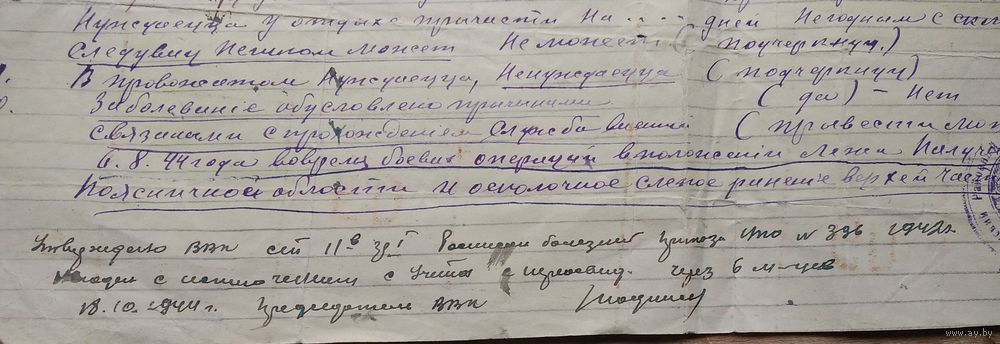 Нуждаецца у отдыхе причисти на .... дней Негодным с ски
следувиу пешком может Не может ( подчеркнут.)
В провожатом Нуждаецца, Ненуждаецца ( подчеркнут)
Заболеваніе обусловлено причинами ( да ) - Нет
связанами с прохожденіем служба военной ( привести мож
6.8.44 года вовремя боевых операций вположеніи лежа Получ
Поясничной области и осколочное слепое раненіе верхей част
Утверждено ВВК ст 11 в гр I Росписи болезней Приказа НКО N 336 1942г
с исключением с учета с переосвид. через 6 м-цев
18.10.1944 г. Председатель ВВК
www.ay.by